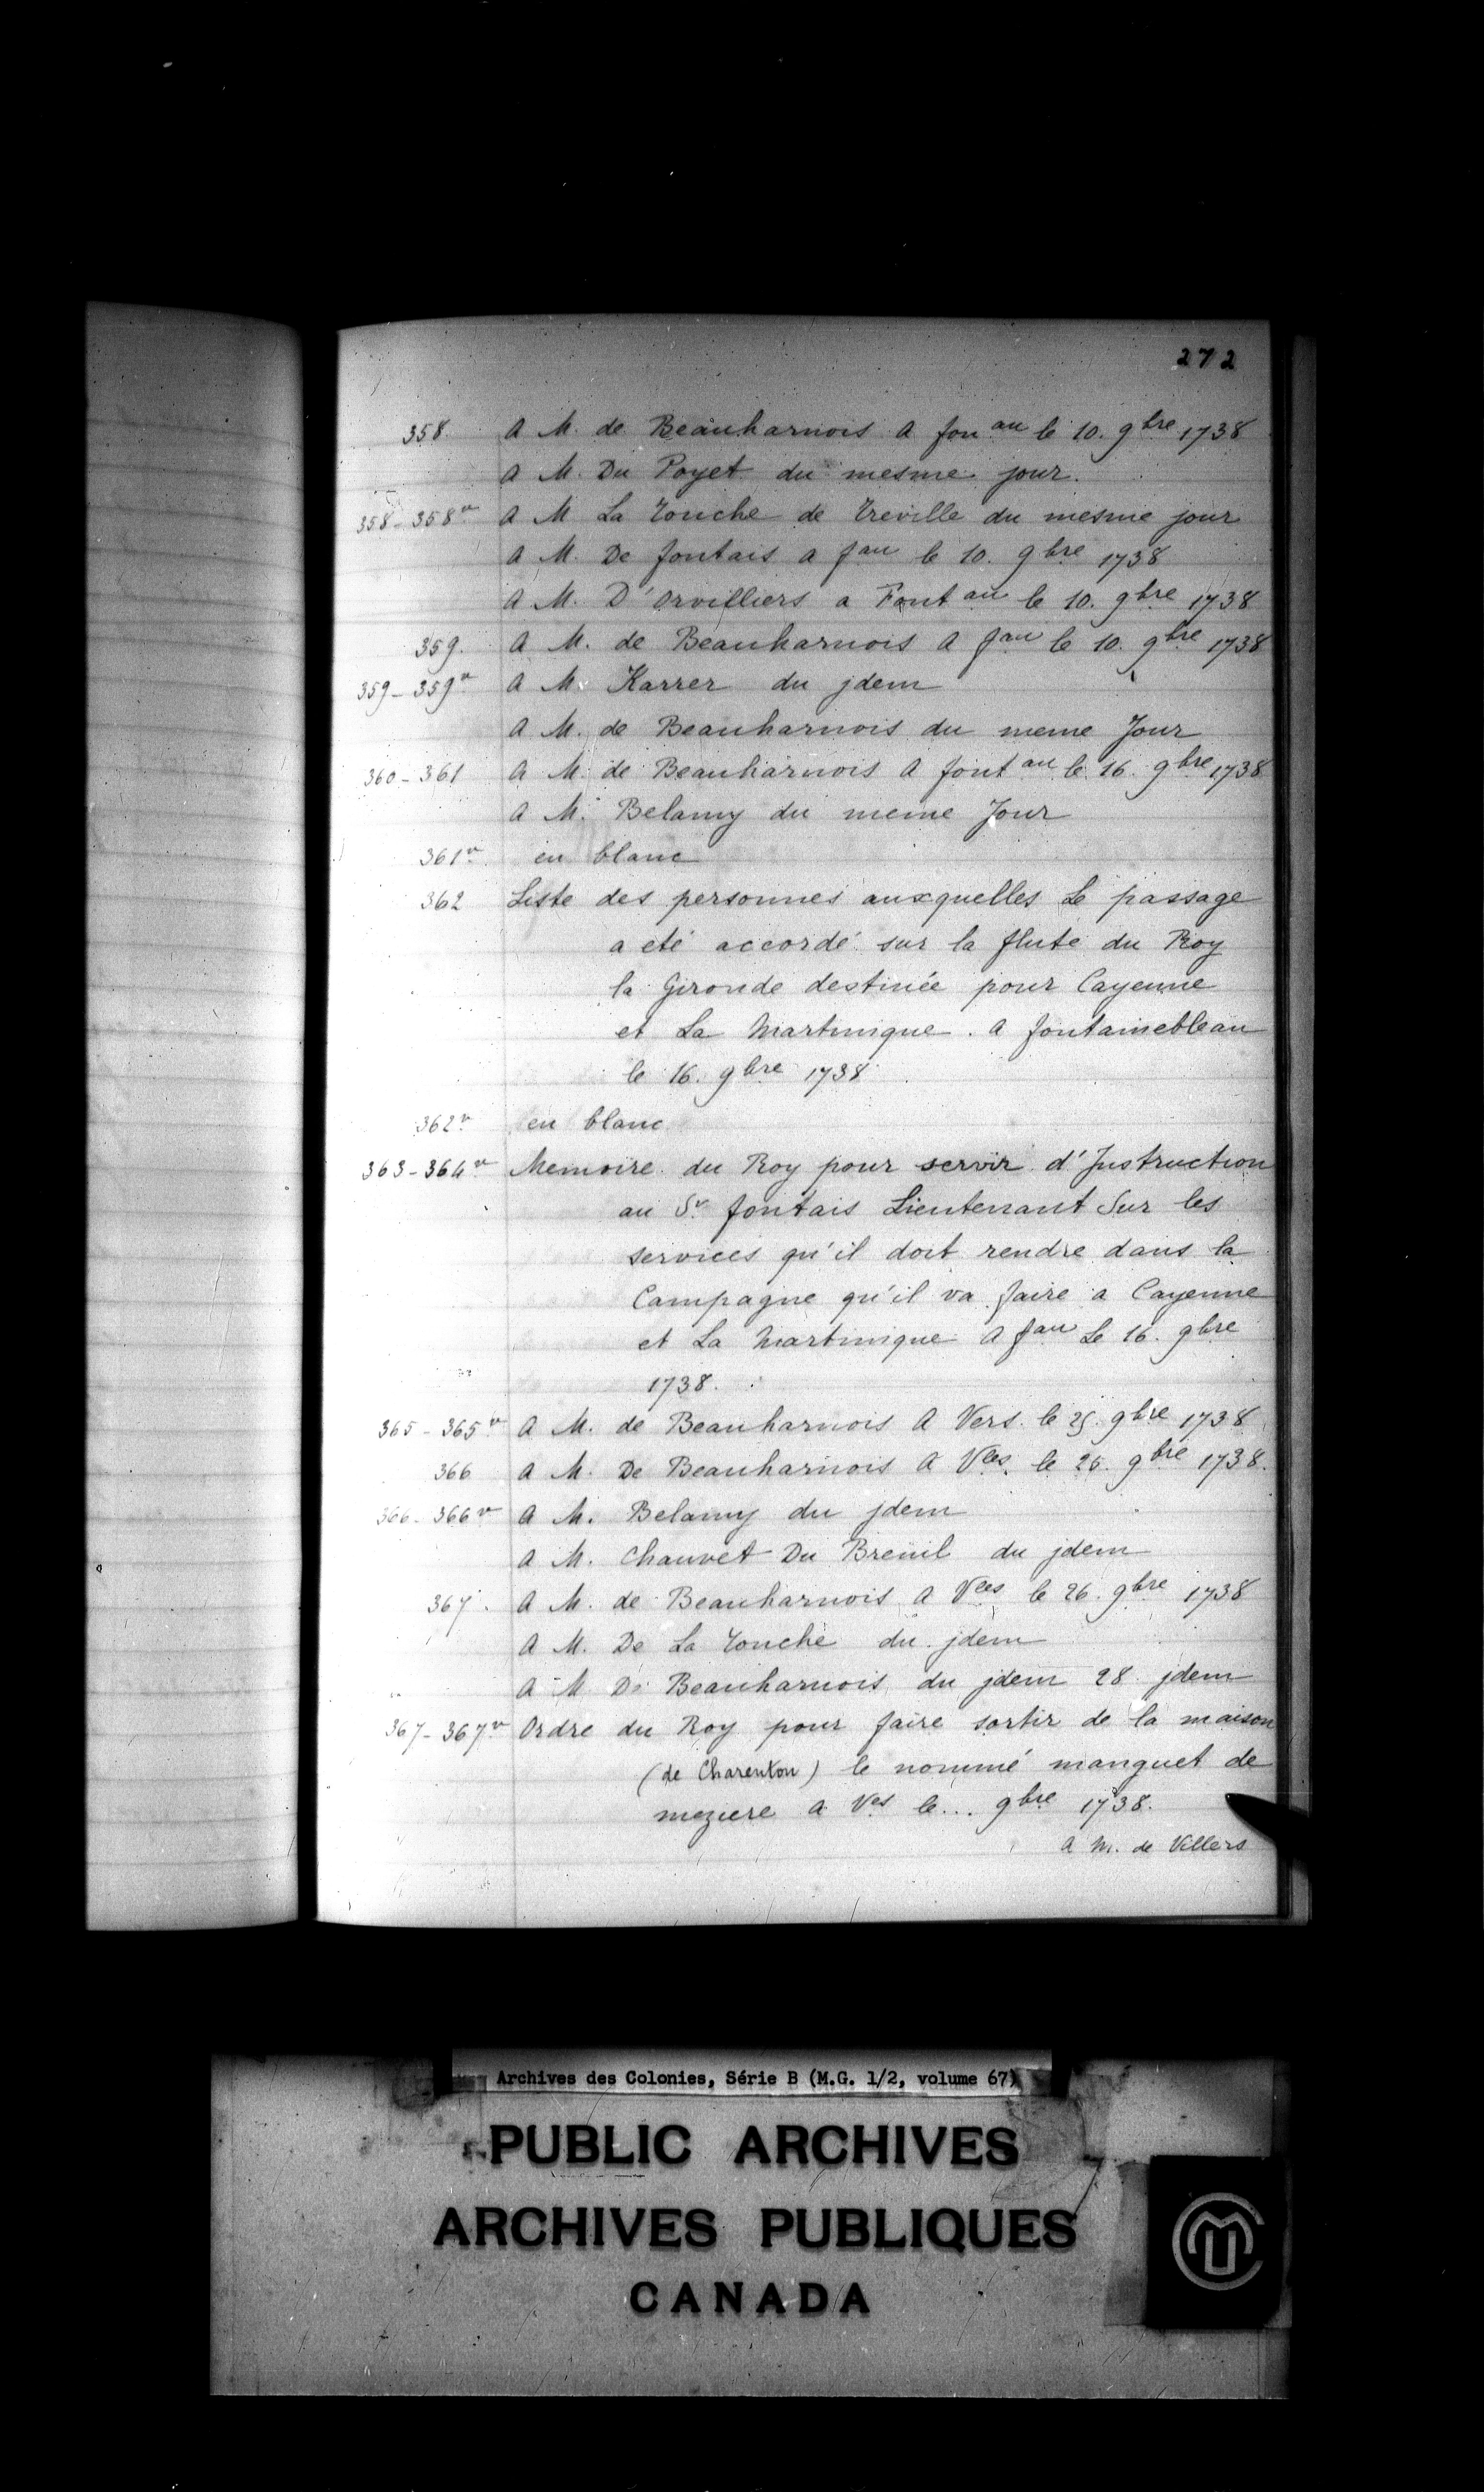 272
358 A M. de Beauharnois A fon au le 10. 9bre 1738
A M. Du Poyet du mesme jour.
358-358v A M La Touche de Treville du mesme jour
A M. De fontais a fau le 10. 9bre 1738
A M. D'Orvilliers a Font au le 10. 9bre 1738
359. A M. de Beauharnois A fau le 10. 9bre 1738
359-359v A M. Karrer du jdem
A M. de Beauharnois du meme Jour
360-361 A M. de Beauharnois A font au le 16. 9bre 1738
A M. Belamy du meme Jour
361v en blanc
362 Liste des personnes auxquelles Le passage
a eté accordé sur la flute du Roy
la Gironde destinée pour Cayenne
et La Martinique. A fontainebleau
le 16. 9bre 1738
362v en blanc
363-364v Memoire du Roy pour servir d'Instruction
au Sr fontais Lieutenant Sur les
services qu'il doit rendre dans la
Campagne qu'il va faire a Cayenne
et La Martinique A fau Le 16. 9bre
1738.
365-365v A M. de Beauharnois A Vers. le 25. 9bre 1738
366 A M. De Beauharnois A Vles. le 25. 9bre 1738.
366-366v A M. Belamy du jdem
A M. Chauvet Du Breuil du jdem
367. A M. de Beauharnois A Vles le 26. 9bre 1738
A M. De La Touche du jdem
A M De Beauharnois du jdem 28 jdem
367-367v Ordre du Roy pour faire sortir de la maison
(de Charenton) le nommé manguet de
meziere a Ves le... 9bre 1738.
A M. de Villers
Archives des Colonies, Série B (M.G. 1/2, volume 67)
PUBLIC ARCHIVES
ARCHIVES PUBLIQUES
CANADA